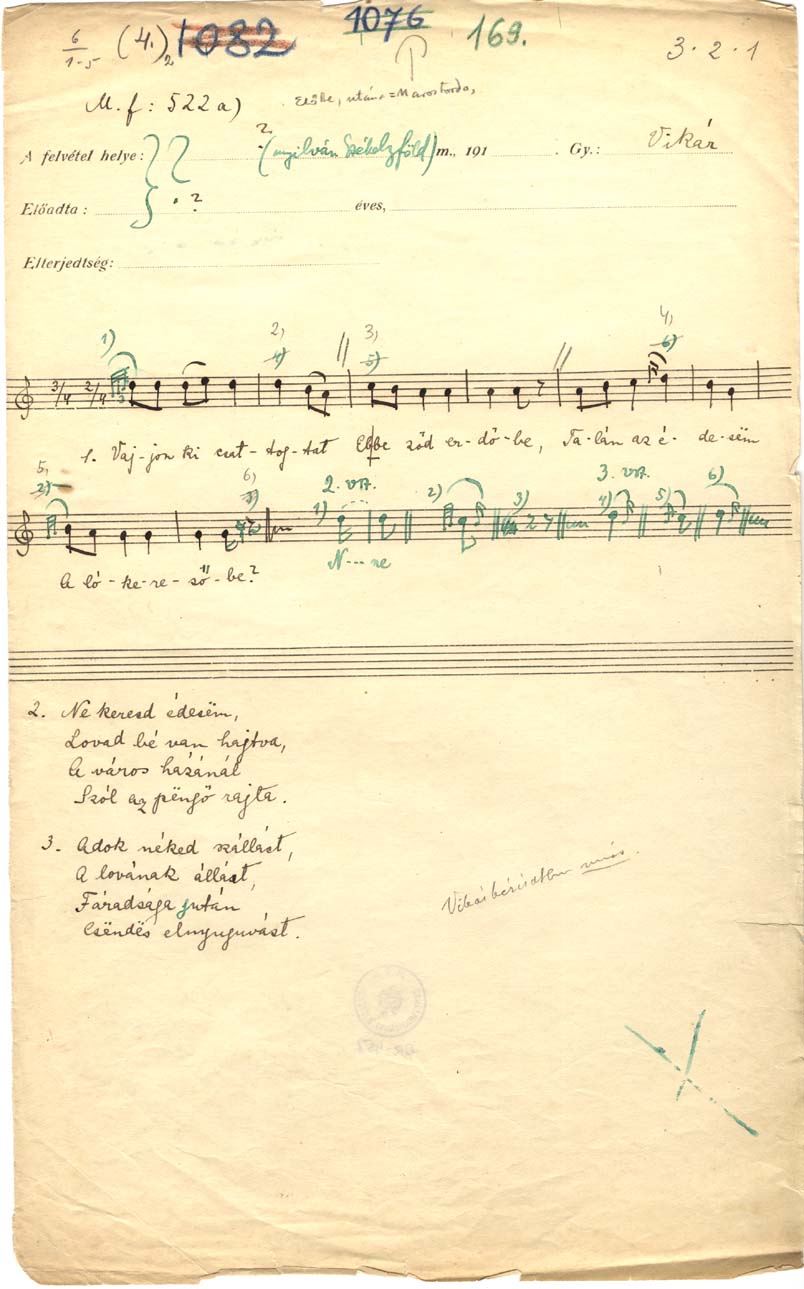 6/1-5 (4.)2 1082 1076 169. 3·2·1
M. f: 522 a) Előtte, utána = Marostorda,
A felvétel helye: ? (nyilván Székelyföld) m., 191 . Gy.: Vikár
Előadta: ? éves,
Elterjedtség:
1) 2, 4) 3, 5) 4, 6)
3/4 2/4
1. Vaj-jon ki csat-tog-tat Ebbe ződ er-dő-be, Ta-lán az é-de-sëm
5, 2) 6, 3) 2. vsz. 1) 2) 3) 3. vsz. 4) 5) 6)
A ló-ke-re-ső-be? N---ne
2. Ne keresd édesëm,
Lovad bé van hajtva,
A város házánál
Szól az pëngő rajta.
3. Adok néked szállást,
A lovának állást,
Fáradságaután
Csëndës elnyuguvást.